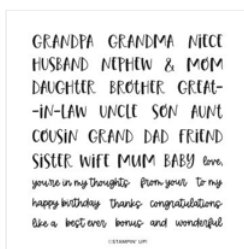 GRANDPA GRANDMA NIECE
HUSBAND NEPHEW & MOM
DAUGHTER BROTHER GREAT-
-IN-LAW UNCLE SON AUNT
COUSIN GRAND DAD FRIEND
SISTER WIFE MUM BABY love,
you're in my thoughts from your to my
happy birthday thanks congratulations
like a best ever bonus and wonderful
© STAMPIN' UP!